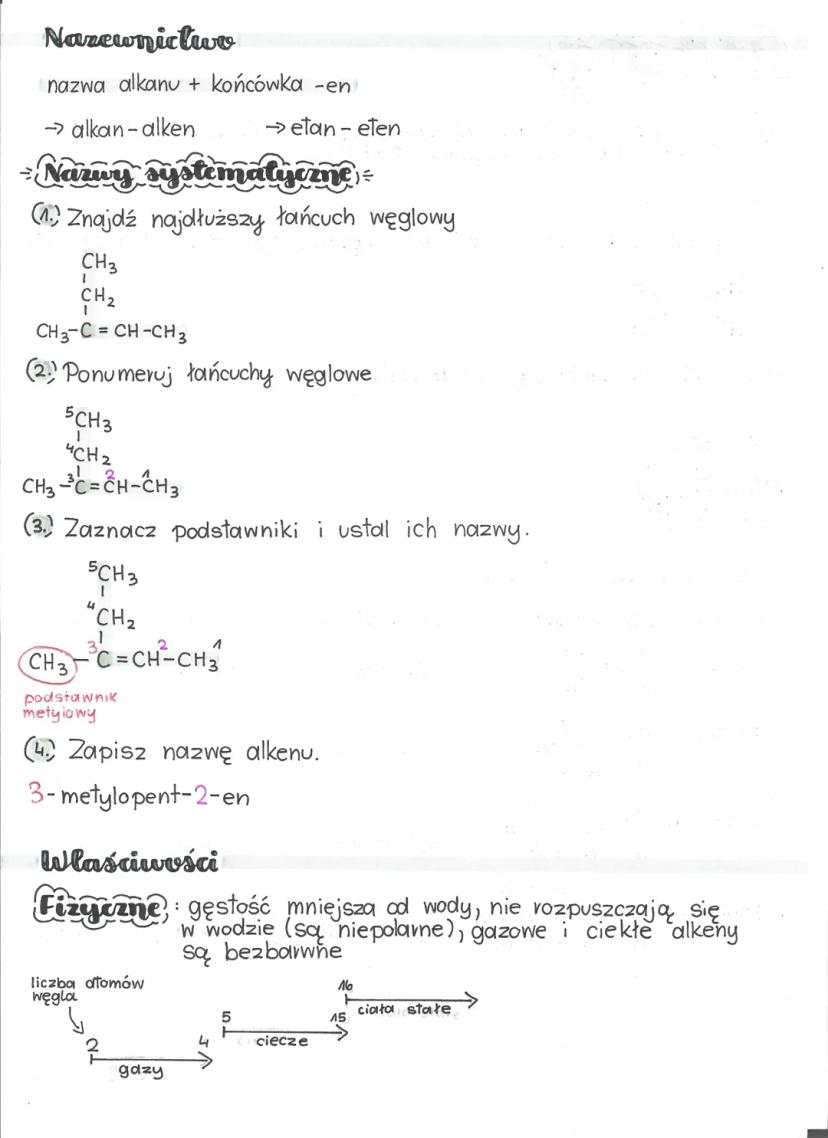 Nazewnictwo
nazwa alkanu + końcówka -en
→ alkan - alken → etan - eten
Nazwy systematyczne
1. Znajdź najdłuższy łańcuch węglowy
CH3
CH2
CH3-C=CH-CH3
2. Ponumeruj łańcuchy węglowe
5CH3
4CH2
CH3-3C=2CH-1CH3
3. Zaznacz podstawniki i ustal ich nazwy.
5CH3
4CH2
CH3-3C=CH2-CH3 1
podstawnik
metylowy
4. Zapisz nazwę alkenu.
3-metylopent-2-en
Właściwości
Fizyczne: gęstość mniejsza od wody, nie rozpuszczają się
w wodzie (są niepolarne), gazowe i ciekłe alkeny
są bezbarwne
liczba atomów
węgla
2 4
gazy
5 15
ciecze
16
ciała stałe